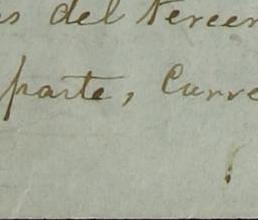 s del tercer
parte, Curre